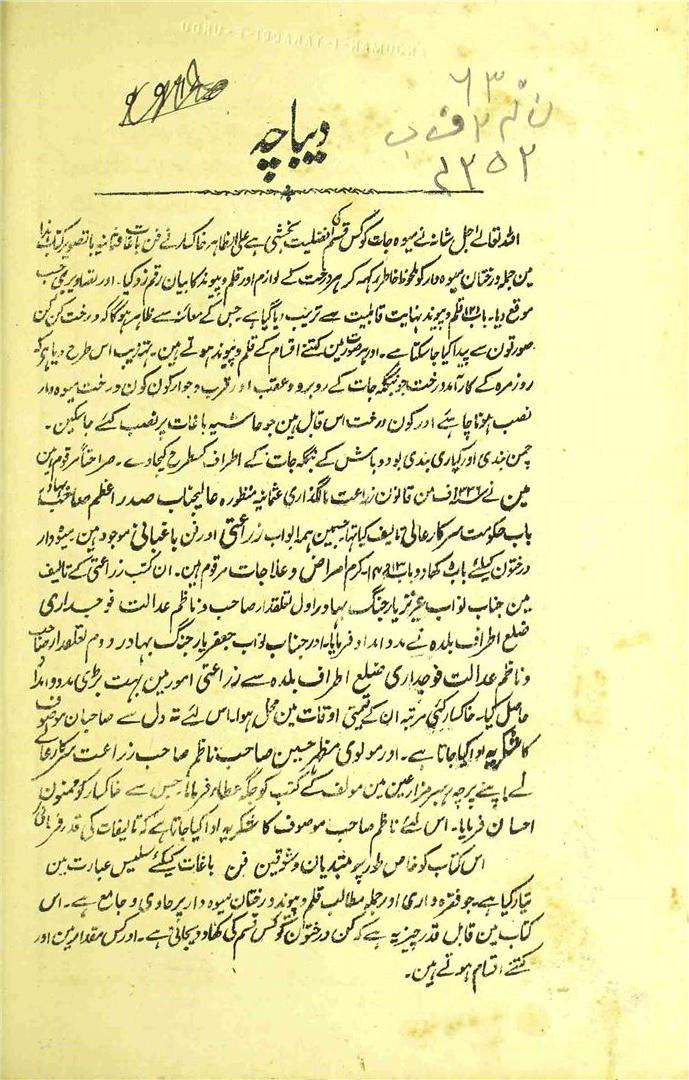 دیباچہ
اللہ تعالےٰ جل شانہ نے میوہ جات کو کس قسم کی افضلیت بخشی ہے علی الظاہر خاکسار نے فن باغات عثمانیہ باتصویر کتاب ہذا
مین جملہ درختان میوہ دار کو ملحوظ خاطر رکہہ کر ہر درخت کے لوازم اور قلم و پیوند کا بیان رقم زد کیا۔ اور تصاویر بھی حسب
موقع دیا۔ باب قلم و پیوند نہایت قابلیت سے ترتیب دیا گیا ہے جس کے معائنہ سے ظاہر ہوگا کہ درخت کن کن
صورتون سے پیدا کیا جا سکتا ہے۔ اور ہر صورت مین کتنے اقسام کے قلم و پیوند ہوتے ہین۔ تہذیب اس طرح دیا ہے کہ
روزمرہ کے کارآمد درخت جو بنگلہ جات کے روبرو و عقب اور قرب و جوار کون کون درخت میوہ دار
نصب ہونا چاہئے اور کون درخت اس قابل ہین جو حاشیہ باغات پر نصب کئے جاسکین۔
چمن بندی اور کیاری بندی بودوباش کے بنگلہ جات کے اطراف کسطرح کیجاوے۔ صراحتاً مرقوم ہین
مین نے ۱۳۳۶ف من قانون زراعت مالگذاری عثمانیہ منظورہ عالیجناب صدر اعظم صاحب بہادر
باب حکومت سرکار عالی تالیف کیا تہا جسمین ہمہ ابواب زراعتی اور فن باغبانی موجود ہین میوہ دار
درختون کیلئے باب کھاد و باب کرم امراض و علاجات مرقوم ہین۔ ان کتب زراعتی کے تالیف
مین جناب نواب عزیز یار جنگ بہادر اول تعلقدار صاحب و ناظم عدالت فوجداری
ضلع اطراف بلدہ نے مدد امداد فرمایا۔ اور جناب نواب جعفر یار جنگ بہادر دوم تعلقدار صاحب
و ناظم عدالت فوجداری ضلع اطراف بلدہ سے زراعتی امور مین بہت بڑی مدد و امداد
حاصل کیا۔ خاکسار کئی مرتبہ ان کے قیمتی اوقات مین مخل ہوا۔ اس لئے تہ دل سے صاحبان موصوف
کا شکریہ ادا کیا جاتا ہے۔ اور مولوی مظہر حسین صاحب ناظم صاحب زراعت سرکار عالی
نے اپنے پرچہ رہبر مزارعین مین مولف کے کتب کو جگہ عطاء فرمایا۔ جس سے خاکسار کو ممنون
احسان فرمایا۔ اس لئے ناظم صاحب موصوف کا شکریہ ادا کیا جاتا ہے کہ تالیفات کی قدر فرمائی
اس کتاب کو خاص طور پر مبتدیان و شوقین فن باغات کیلئے سلیس عبارت مین
تیار کیا ہے۔ جو فقرہ واری اور جملہ مطالب قلم و پیوند درختان میوہ دار پر حاوی و جامع ہے۔ اس
کتاب مین قابل قدر چیز یہ ہے کہ کن درختون کو کس قسم کی کھاد دیجاتی ہے۔ اور کس مقدار مین اور
کتنے اقسام ہوتے ہین۔